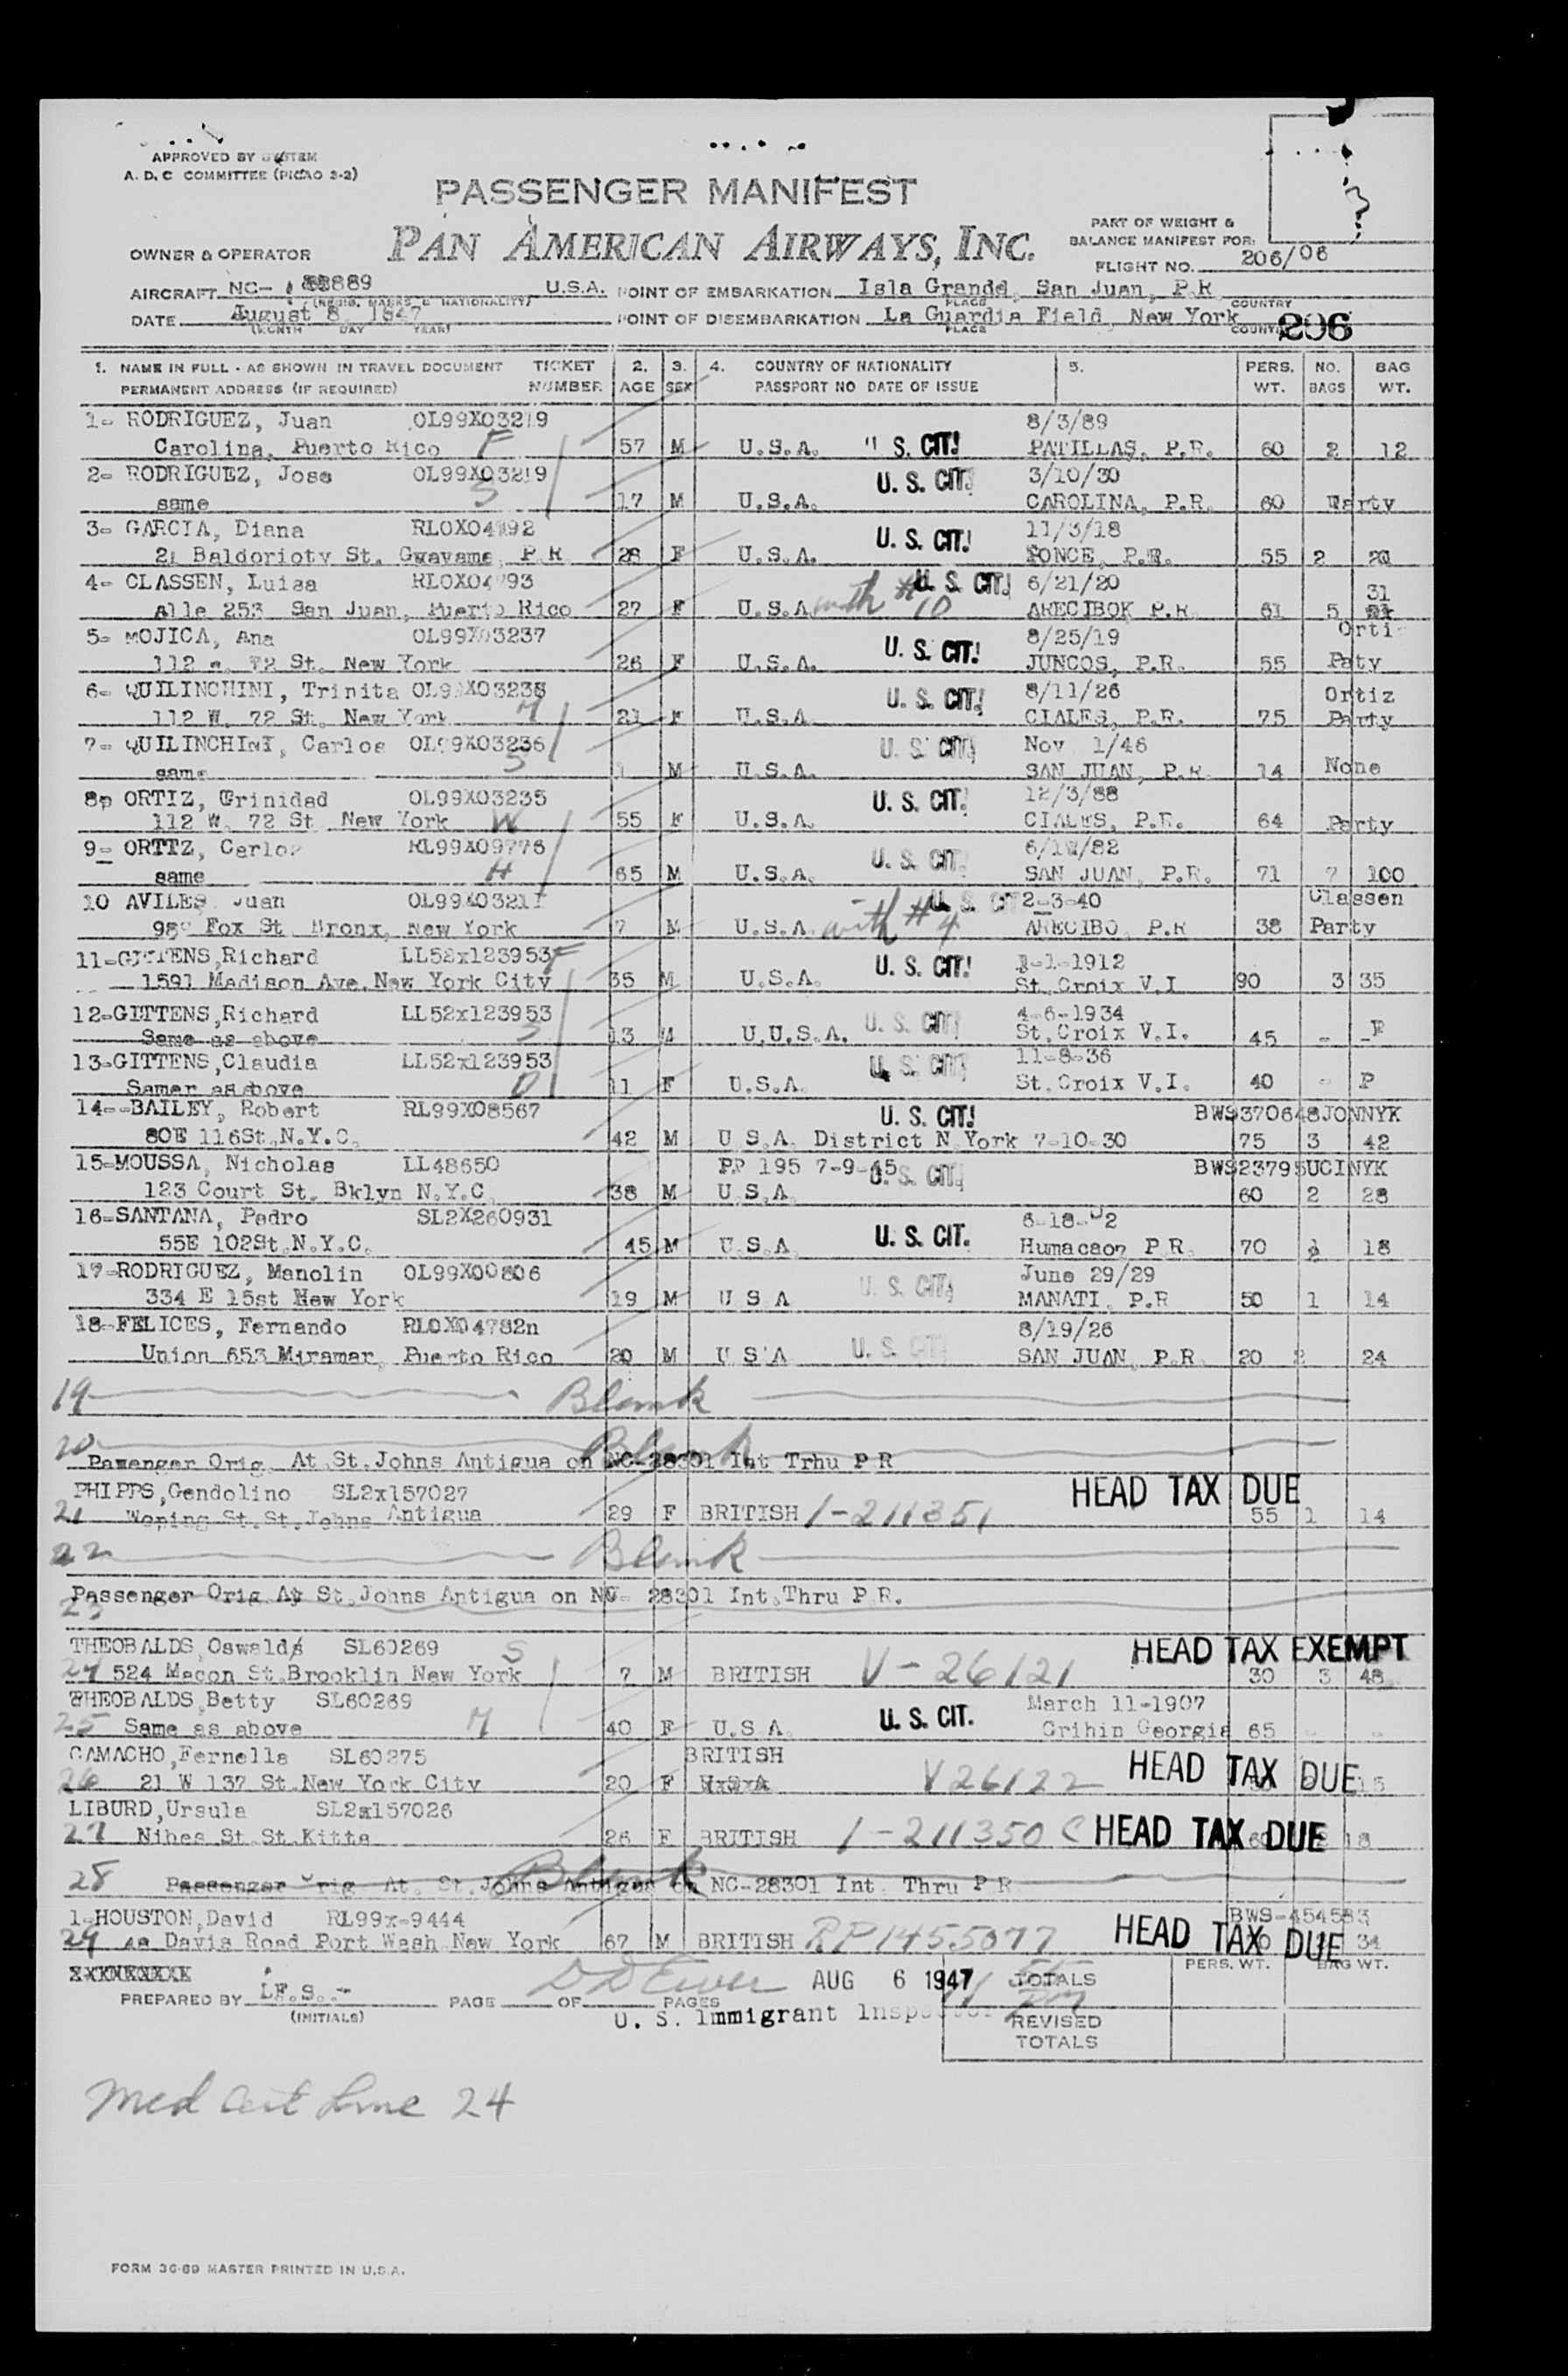 APPROVED BY SYSTEM
A. D. C COMMITTEE (PICAO 3-2)
PASSENGER MANIFEST
PAN AMERICAN AIRWAYS, INC.
PART OF WEIGHT &
BALANCE MANIFEST FOR:
OWNER & OPERATOR
FLIGHT NO. 206/06
AIRCRAFT NC- 88889 U.S.A. POINT OF EMBARKATION Isla Grande, San Juan, P.R
(REGIS. MARKS & NATIONALITY) PLACE COUNTRY
DATE August 8, 1947 POINT OF DISEMBARKATION La Guardia Field, New York
(MONTH DAY YEAR) PLACE COUNTRY 206
1. NAME IN FULL - AS SHOWN IN TRAVEL DOCUMENT TICKET 2. 3. 4. COUNTRY OF NATIONALITY 5. PERS. NO. BAG
PERMANENT ADDRESS (IF REQUIRED) NUMBER AGE SEX PASSPORT NO DATE OF ISSUE WT. BAGS WT.
1- RODRIGUEZ, Juan OL99X03219 8/3/89
Carolina, Puerto Rico F 57 M U.S.A. " S. CIT! PATILLAS, P.R. 60 2 12
2- RODRIGUEZ, Jose OL99X03219 U. S. CIT! 3/10/30
same S 17 M U.S.A. CAROLINA, P.R. 60 Party
3- GARCIA, Diana RLOX04192 U. S. CIT! 11/3/18
21 Baldorioty St. Gwayama, P.R 28 F U.S.A. PONCE, P.R. 55 2
4- CLASSEN, Luisa U. S. CIT! 6/21/20 31
Alle 253 San Juan, Puerto Rico 27 F U.S.A. with #10 ARECIBOK P.R. 61 5
5- MOJICA, Ana OL99X03237 U. S. CIT! 8/25/19 Orti
112 72 St. New York 26 F U.S.A. JUNCOS, P.R. 55 Paty
6- QUILINCHINI, Trinita U. S. CIT! 8/11/26 Ortiz
112 W. 72 St. New York M 21 F U.S.A CIALES, P.R. 75 Party
7- QUILINCHINI, Carlos OL99X03236 U. S. CIT! Nov 1/46
same S 1 M U.S.A. SAN JUAN, P.R. 14 None
8- ORTIZ, Grinidad OL99X03235 U. S. CIT! 12/3/88
112 W. 72 St New York W 55 F U.S.A. CIALES, P.R. 64 Party
9- ORTIZ, Carlos RL99X09776 U. S. CIT
same H 65 M U.S.A. SAN JUAN, P.R. 71 7 100
10 AVILES Juan U. S. CIT 2-3-40 Classen
Fox St. Bronx, New York 7 M U.S.A. with #4 ARECIBO, P.R 38 Party
11-GITTENS,Richard LL52x123953 F U. S. CIT! 1-1-1912
1591 Madison Ave. New York City 35 M U.S.A. St.Croix V.I 90 3 35
12-GITTENS,Richard LL52x123953 4-6-1934
Same as above S 13 M U.U.S.A. U. S. CIT! St.Croix V.I. 45 - -P
13-GITTENS,Claudia LL52x123953 U. S. CIT! 11-8-36
Samer as above D 11 F U.S.A. St.Croix V.I. 40 - P
14--BAILEY, Robert RL99X08567 U. S. CIT! BWS370648JONNYK
80E 116St.N.Y.C. 42 M U S.A. District N.York 7-10-30 75 3 42
15-MOUSSA, Nicholas LL48650 PP 195 7-9-45 U. S. CIT! BWS23795UCINYK
123 Court St. Bklyn N.Y.C. 38 M U.S.A. 60 2 28
16-SANTANA, Pedro SL2X260931
55E 102St.N.Y.C. 45 M U.S.A U. S. CIT. Humacaon P.R. 70 18
17-RODRIGUEZ, Manolin OL99X00806 June 29/29
334 E 15st New York 19 M U S A U. S. CIT! MANATI, P.R 50 1 14
18-FELICES, Fernando RLOX04782n 8/19/26
Union 653 Miramar, Puerto Rico 20 M U S A U. S. CIT SAN JUAN, P.R. 20 2 24
19 Blank
20 Blank
Pamenger Orig. At St.Johns Antigua on NC-28301 Int Trhu P R
PHIPPS,Gendolino SL2x157027 HEAD TAX DUE
21 Woping St.St.Johns Antigua 29 F BRITISH 1-211351 55 1 14
22 Blank
Passenger Orig At St.Johns Antigua on NC- 28301 Int.Thru P.R.
23
THEOBALDS,Oswalds SL60269 S HEAD TAX EXEMPT
24 524 Macon St.Brooklin New York 7 M BRITISH V-26121 30 3 48
THEOBALDS,Betty SL60269 March 11-1907
25 Same as above M 40 F U.S.A. U. S. CIT. Grihin Georgia 65 - -
CAMACHO,Fernella SL60275 BRITISH HEAD TAX DUE
26 21 W 137 St.New York City 20 F V26122 15
LIBURD,Ursula SL2x157026
27 Nihes St.St.Kitts 26 F BRITISH 1-211350 C HEAD TAX DUE 18
28 Blank
Passenger Orig At. St.Johns Antigua on NC-28301 Int. Thru P R
1-HOUSTON,David RL99x-9444 BWS-454583
29 Davis Road Port Wash New York 67 M BRITISH RP1455077 HEAD TAX DUE 34
PERS. WT. BAG WT.
PREPARED BY LF.S.- PAGE OF PAGES AUG 6 1947 TOTALS
(INITIALS) U. S. Immigrant Inspector REVISED
TOTALS
Med Cert Line 24
FORM 36-89 MASTER PRINTED IN U.S.A.